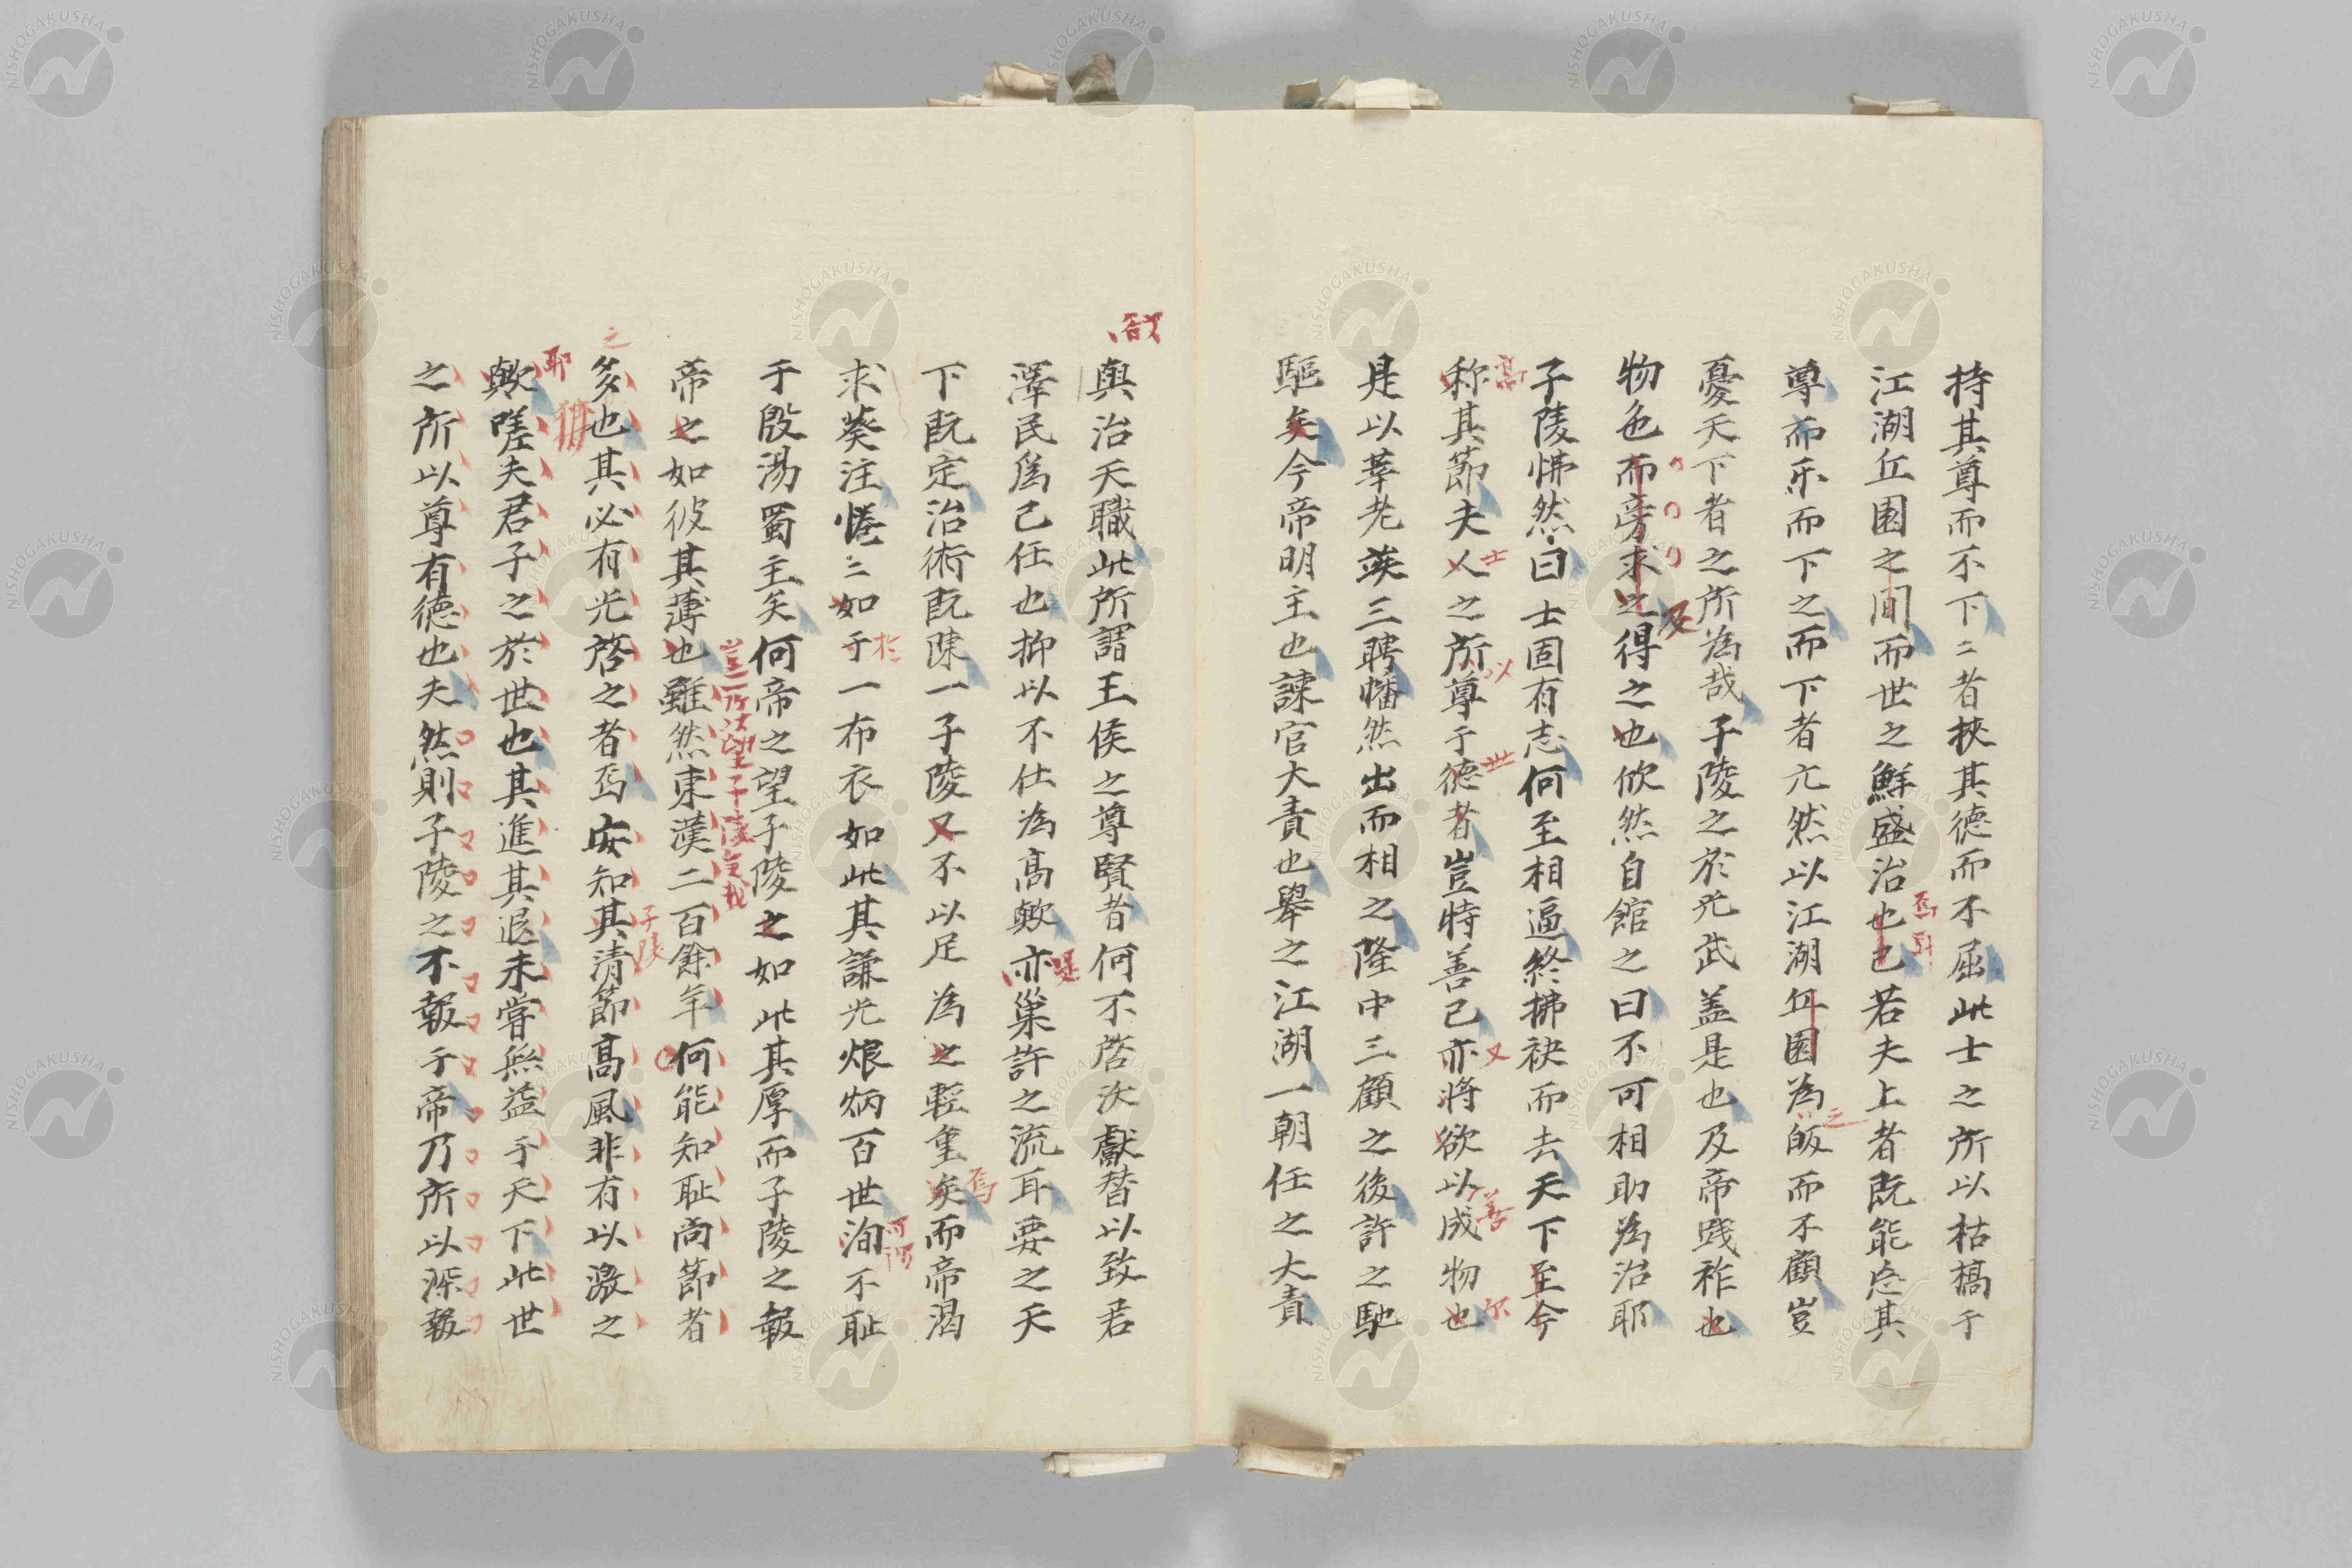 持其尊而不下二者挾其德而不屈此士之所以枯槁于
江湖丘園之間而世之鮮盛治也已若夫上者既能忘其
焉耳
尊而樂而下之而下者亢然以江湖丘園為皈而不顧豈
之
憂天下者之所為哉子陵之於光武盖是也及帝践祚也
物色而旁求之得之也欣然自館之曰不可相助為治耶
及
子陵怫然曰士固有志何至相逼終拂袂而去天下至今
高
称其節夫人之所尊于德者豈特善己亦將欲以成物也
士
以
世
又
善
尔
是以莘老竢三聘幡然出而相之隆中三顧之後許之馳
驅矣今帝明主也諫官大責也舉之江湖一朝任之大責
與治天職此所謂王侯之尊賢者何不啓沃獻替以致君
澤民為己任也抑以不仕為高歟亦巢許之流耳要之天
是
下既定治術既陳一子陵又不以足為之輕重矣而帝渴
焉
求葵注惓二如于一布衣如此其謙光烺炳百世洵不耻
於
可謂
于殷湯蜀主矣何帝之望子陵之如此其厚而子陵之報
帝之如彼其薄也雖然東漢二百餘年何能知耻尚節者
子陵
多也其必有光啓之者焉安知其清節高風非有以激之
之
歟嗟夫君子之於世也其進其退未嘗無益乎天下此世
耶
之所以尊有德也夫然則子陵之不報于帝乃所以深報
NISHOGAKUSHA